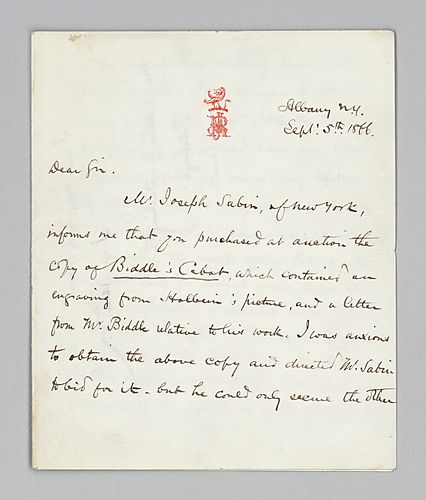 Albany N.Y.
Sept. 5th. 1866.
Dear Sir.
Mr. Joseph Sabin, of New York,
informs me that you purchased at auction the
copy of Biddle's Cabot, which contained an
engraving from Holbein's picture, and a letter
from Mr. Biddle relative to his work. I was anxious
to obtain the above copy and directed Mr. Sabin
to bid for it - but he could only secure the other